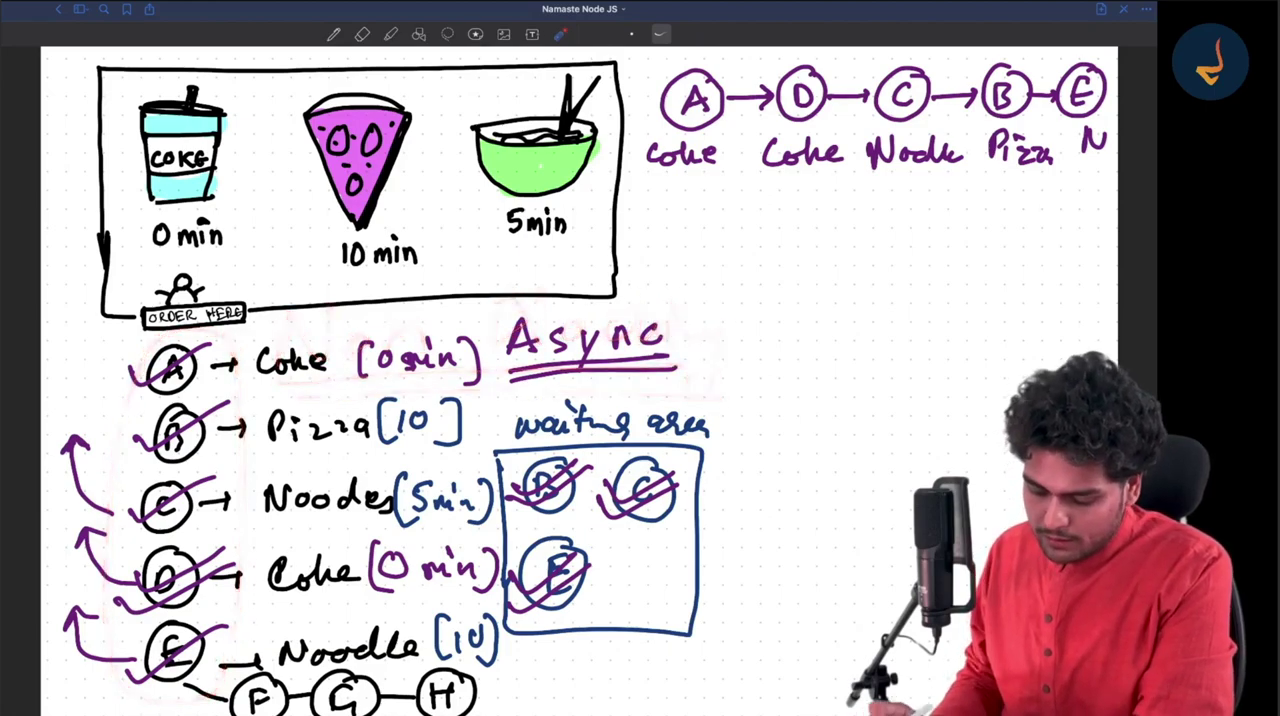 Namaste Node JS
COKE
0 min
10 min
5min
ORDER HERE
A → D → C → B → E
Coke Coke Noodle Pizza N
Async
A → Coke [0 min]
B → Pizza [10]
C → Noodes (5min)
D → Coke [0 min)
E → Noodle [10]
F G H
waiting area
B C
E